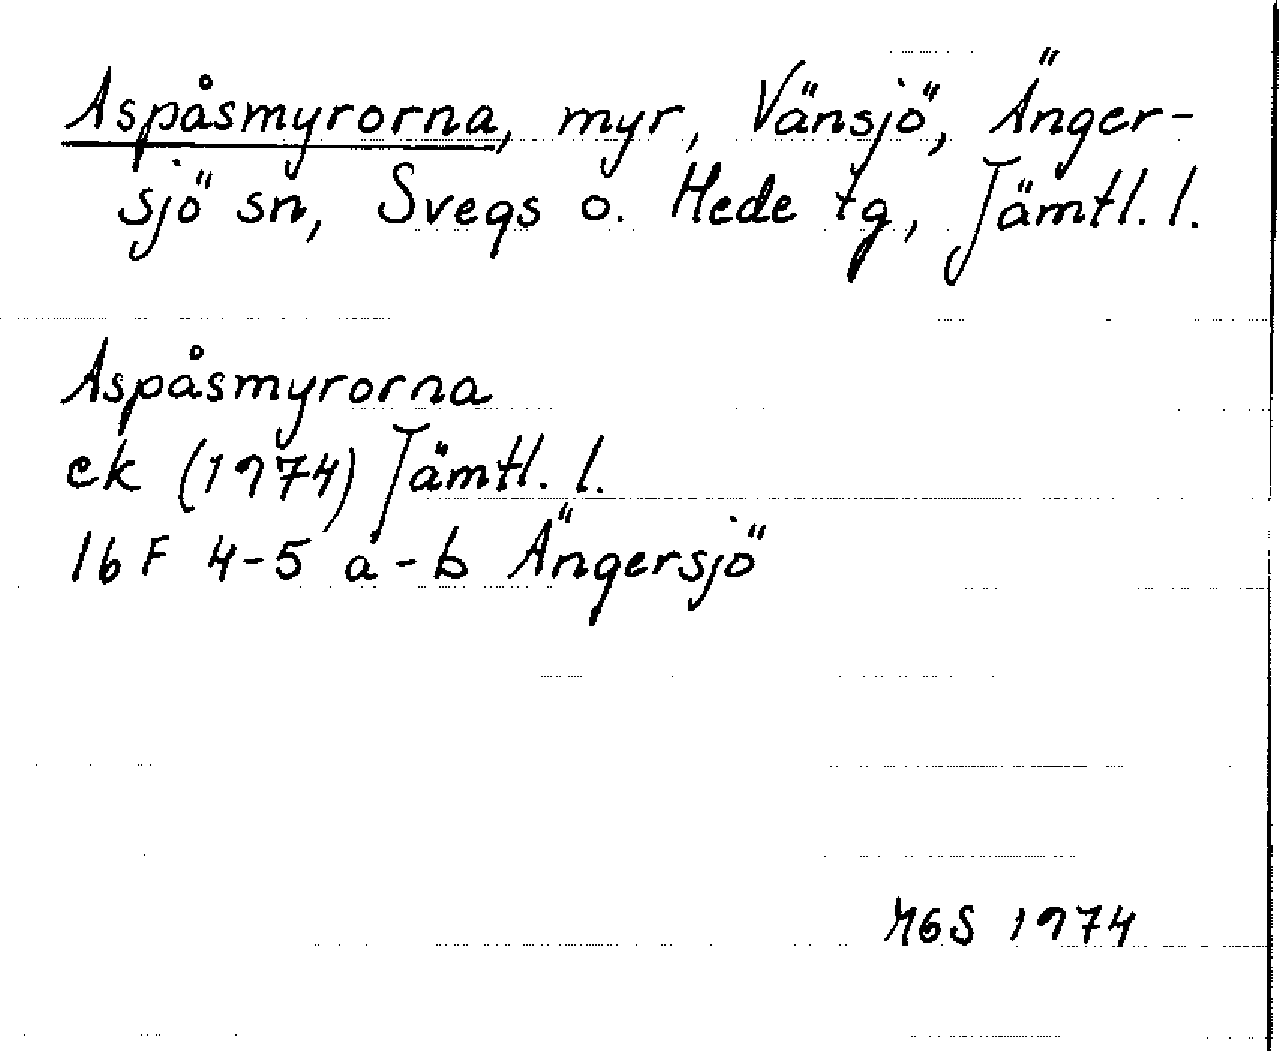 Aspåsmyrorna, myr, Vänsjö, Änger-
sjö sn, Svegs o. Hede tg, Jämtl. l.
Aspåsmyrorna
ek (1974) Jämtl. l.
16 F 4-5 a-b Ängersjö
MGS 1974